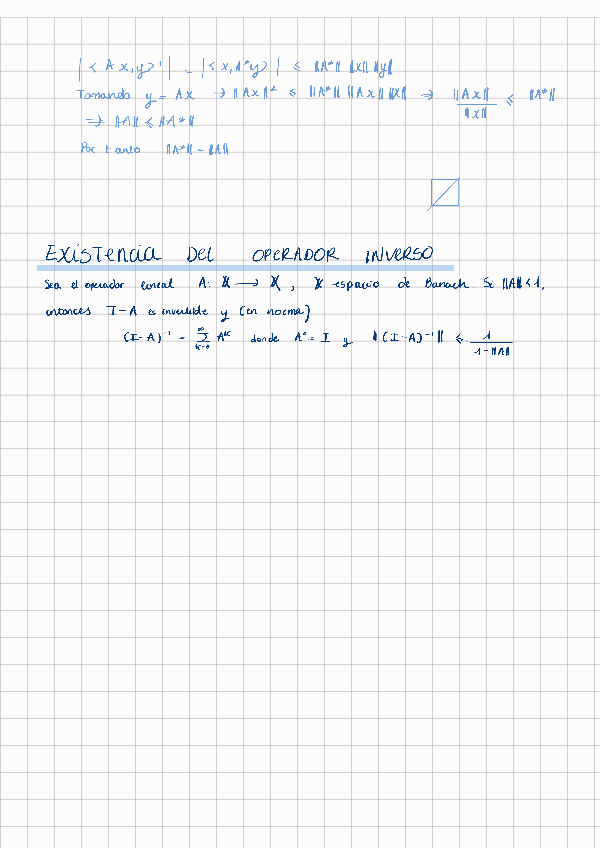 |< A x, y >| = |< x, A*y >| ≤ ||A*|| ||x|| ||y||
Tomando y = Ax → ||Ax||² ≤ ||A*|| ||Ax|| ||x|| ⇒ ||Ax|| / ||x|| ≤ ||A*||
⇒ ||A|| ≤ ||A*||
Por tanto ||A*|| = ||A||
EXISTENCIA DEL OPERADOR INVERSO
Sea el operador lineal A: X → X, X espacio de Banach. Si ||A|| < 1,
entonces I - A es invertible y (en norma)
(I - A)⁻¹ = ∑_{k=0}^{∞} Aᵏ donde A⁰ = I y ||(I - A)⁻¹|| ≤ 1 / (1 - ||A||)